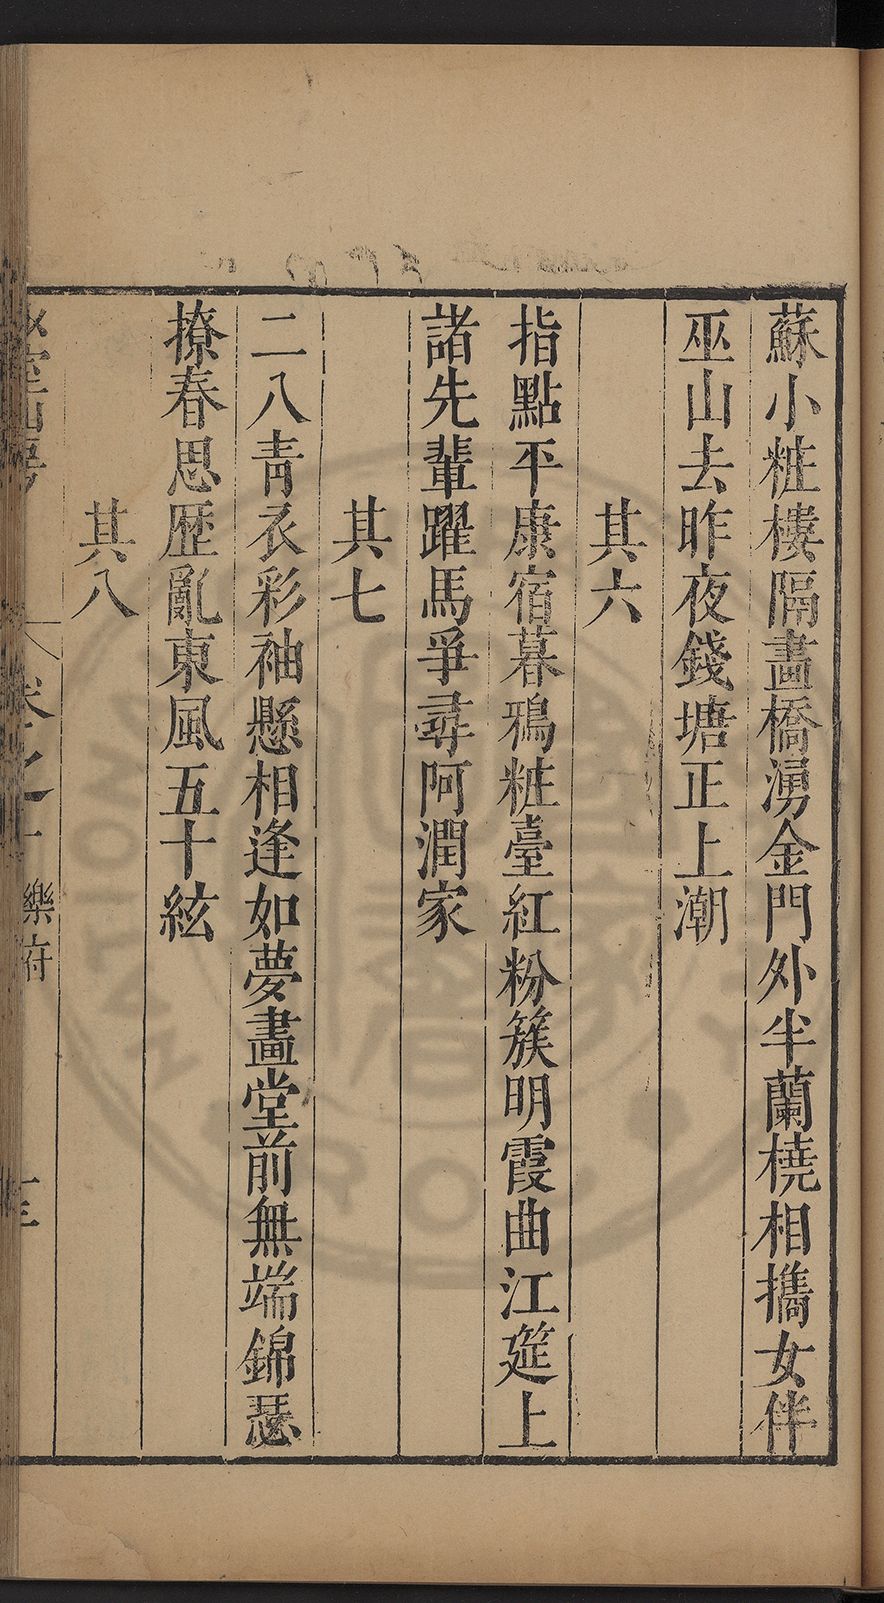 蘇小粧樓隔畫橋湧金門外半蘭橈相攜女伴
巫山去昨夜錢塘正上潮
其六
指點平康宿暮鴉粧臺紅粉簇明霞曲江筵上
諸先輩躍馬爭尋阿潤家
其七
二八靑衣彩袖懸相逢如夢畫堂前無端錦瑟
撩春思歴亂東風五十絃
其八
樂府